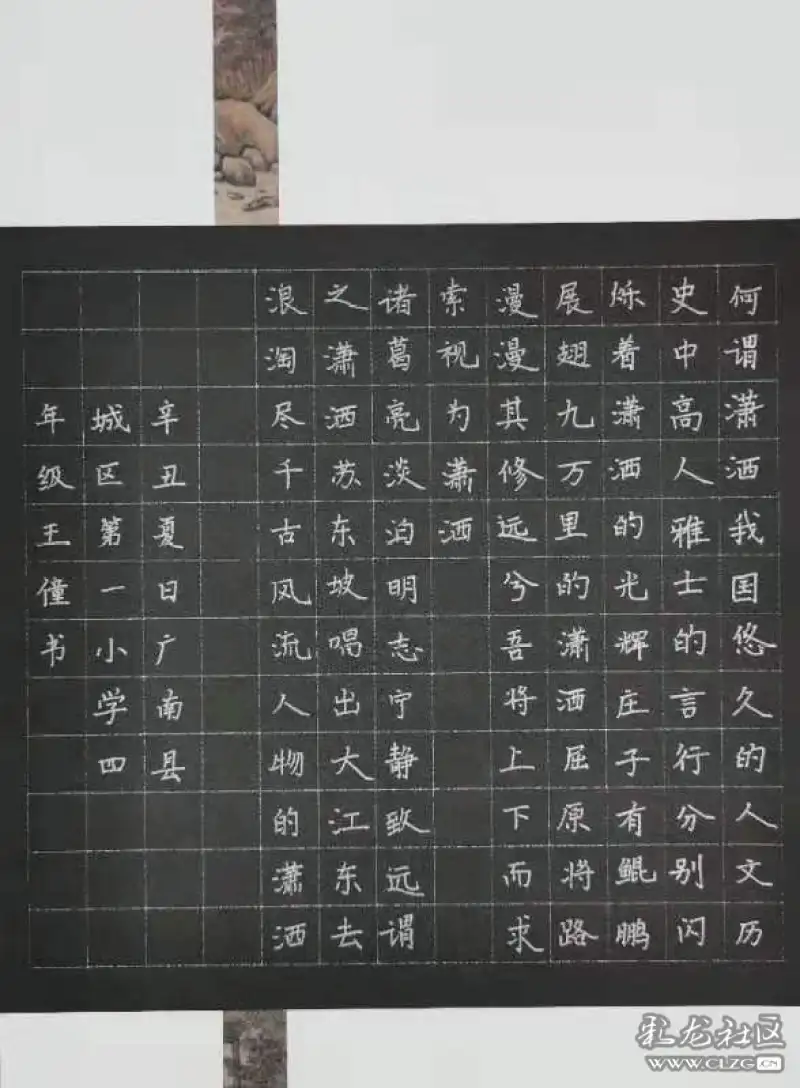 何谓潇洒我国悠久的人文历
史中高人雅士的言行分别闪
烁着潇洒的光辉庄子有鲲鹏
展翅九万里的潇洒屈原将路
漫漫其修远兮吾将上下而求
索视为潇洒
诸葛亮淡泊明志宁静致远谓
之潇洒苏东坡唱出大江东去
浪淘尽千古风流人物的潇洒
辛丑夏日广南县
城区第一小学四
年级王僮书
彩龙社区
WWW.CLZG.CN